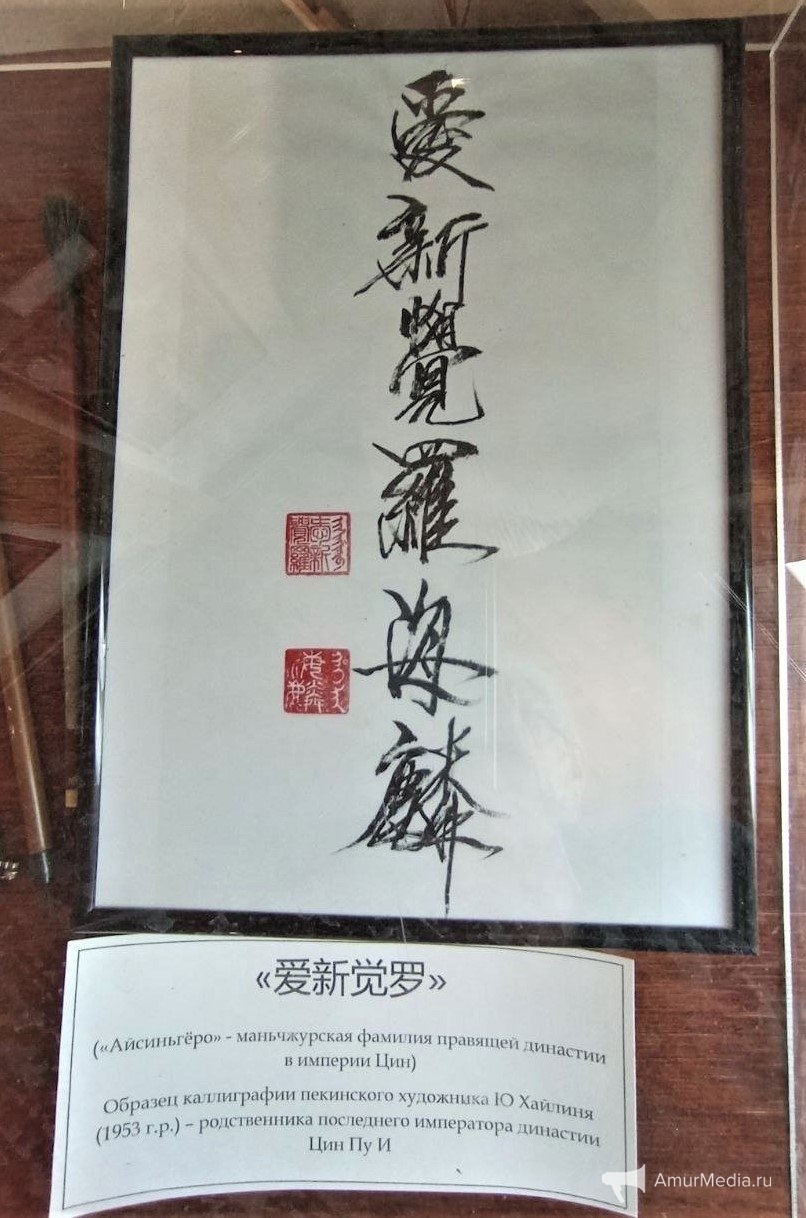 愛新覺羅海麟
«爱新觉罗»
(«Айсиньгёро» - маньчжурская фамилия правящей династии
в империи Цин)
Образец каллиграфии пекинского художника Ю Хайлиня
(1953 г.р.) – родственника последнего императора династии
Цин Пу И
AmurMedia.ru